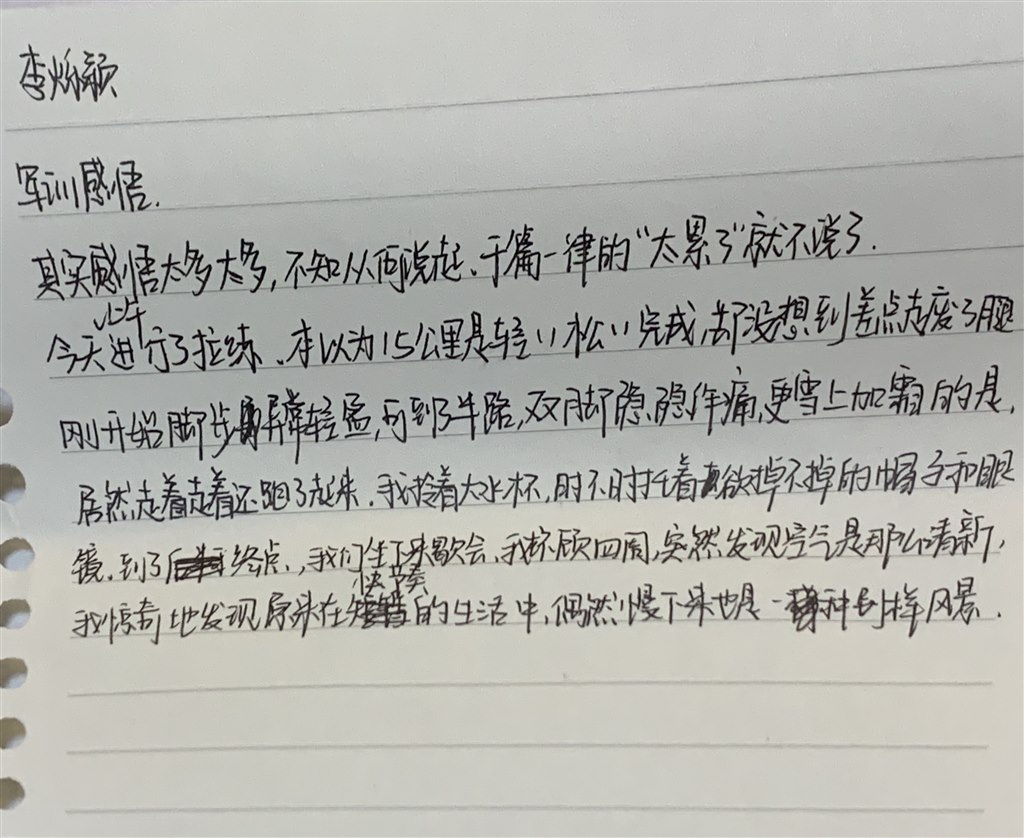 李烁颖
军训感悟.
其实感悟太多太多,不知从何说起.千篇一律的“太累了”就不说了.
今天上午进行了拉练.本以为15公里是轻轻松松完成,却没想到差点走废了腿
刚开始脚步异常轻盈,可到了半路,双脚隐隐作痛,更雪上加霜的是,
居然走着走着还跑了起来.我拎着大水杯,时不时扶着欲掉不掉的帽子和眼
镜.到了终点,我们坐下来歇会,我环顾四周,突然发现空气是那么清新,
我惊奇地发现原来在快节奏的生活中,偶然慢下来也是一种别样风景.